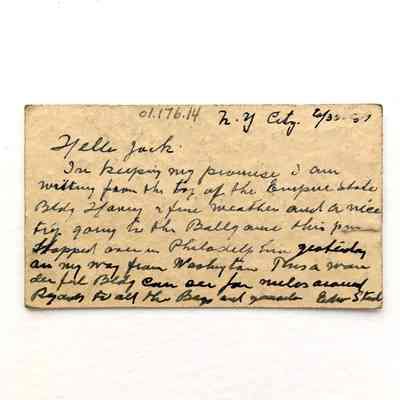 01.176.14
N. Y City.
Hello Jack.
In keeping my promise i am
writing from the top of the Empire State
Bldg Having a fine weather and a nice
trip going to the Ballgame this pm
Stopped over in Philadelphia yesterday
on my way from Washington This a won
derful Bldg can see for miles around
Regards to all the Boys and